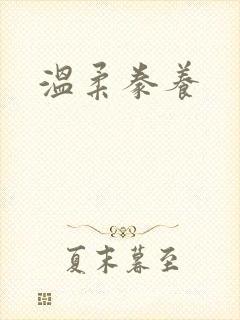 温柔豢养
夏末暮至